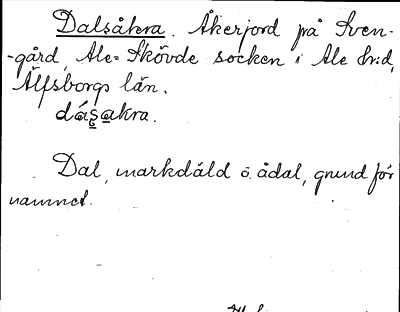 Dalsåkra. Åkerjord på Sven-
-gård, Ale-Skövde socken i Ale Hrd,
Älfsborgs län.
dásakra.
Dal, markdäld o. ådal, grund för
namnet.